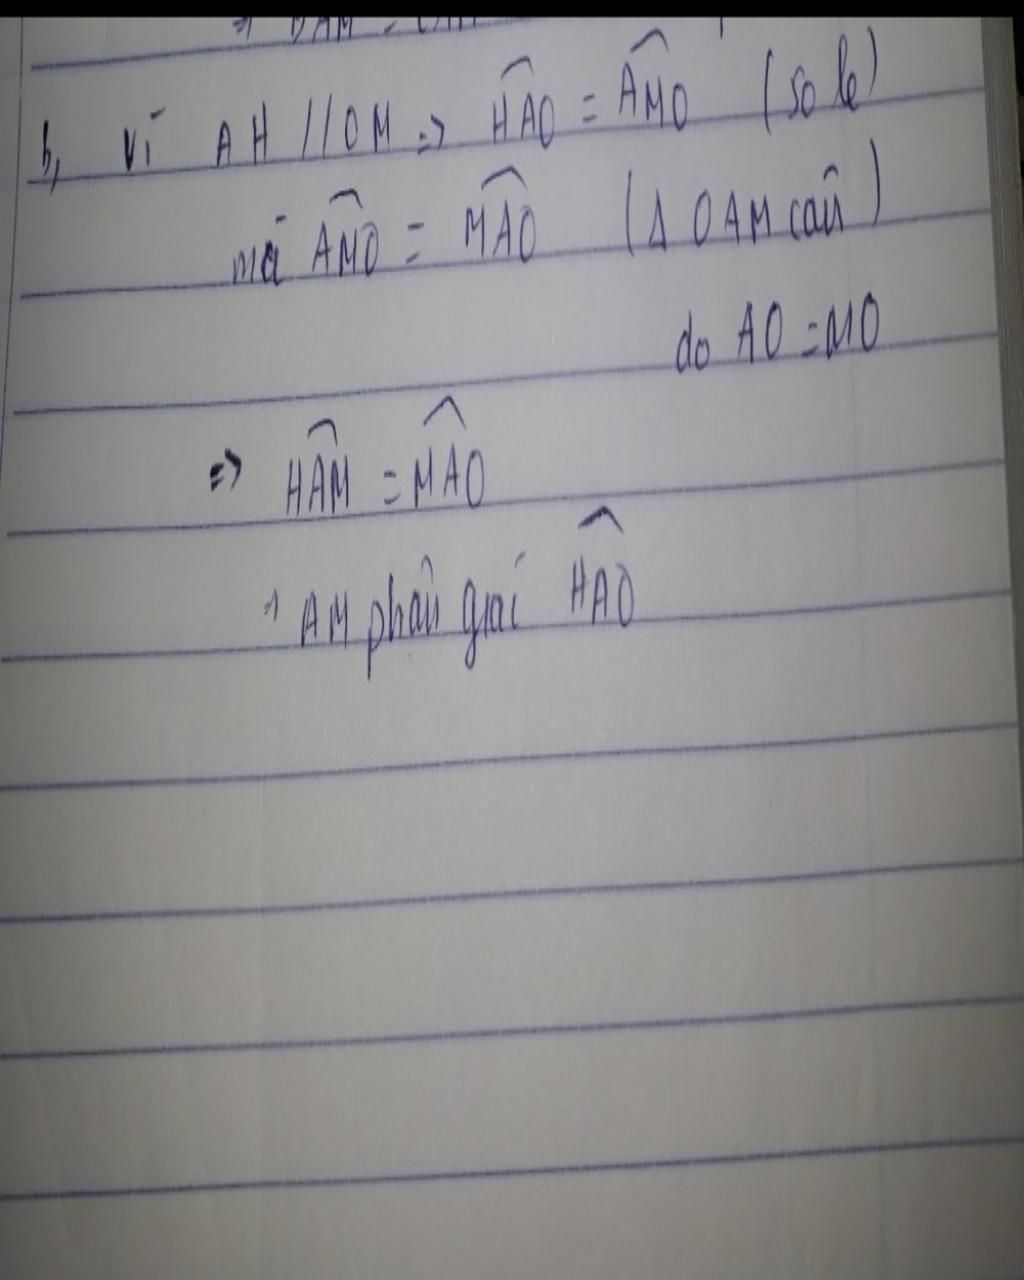 ⇒ DAM = CAM
b, Vì AH // OM => HAO = AMO (so le)
mà AMO = MAO (Δ OAM cân)
do AO = MO
=> HAM = MAO
AM phân giác HAO